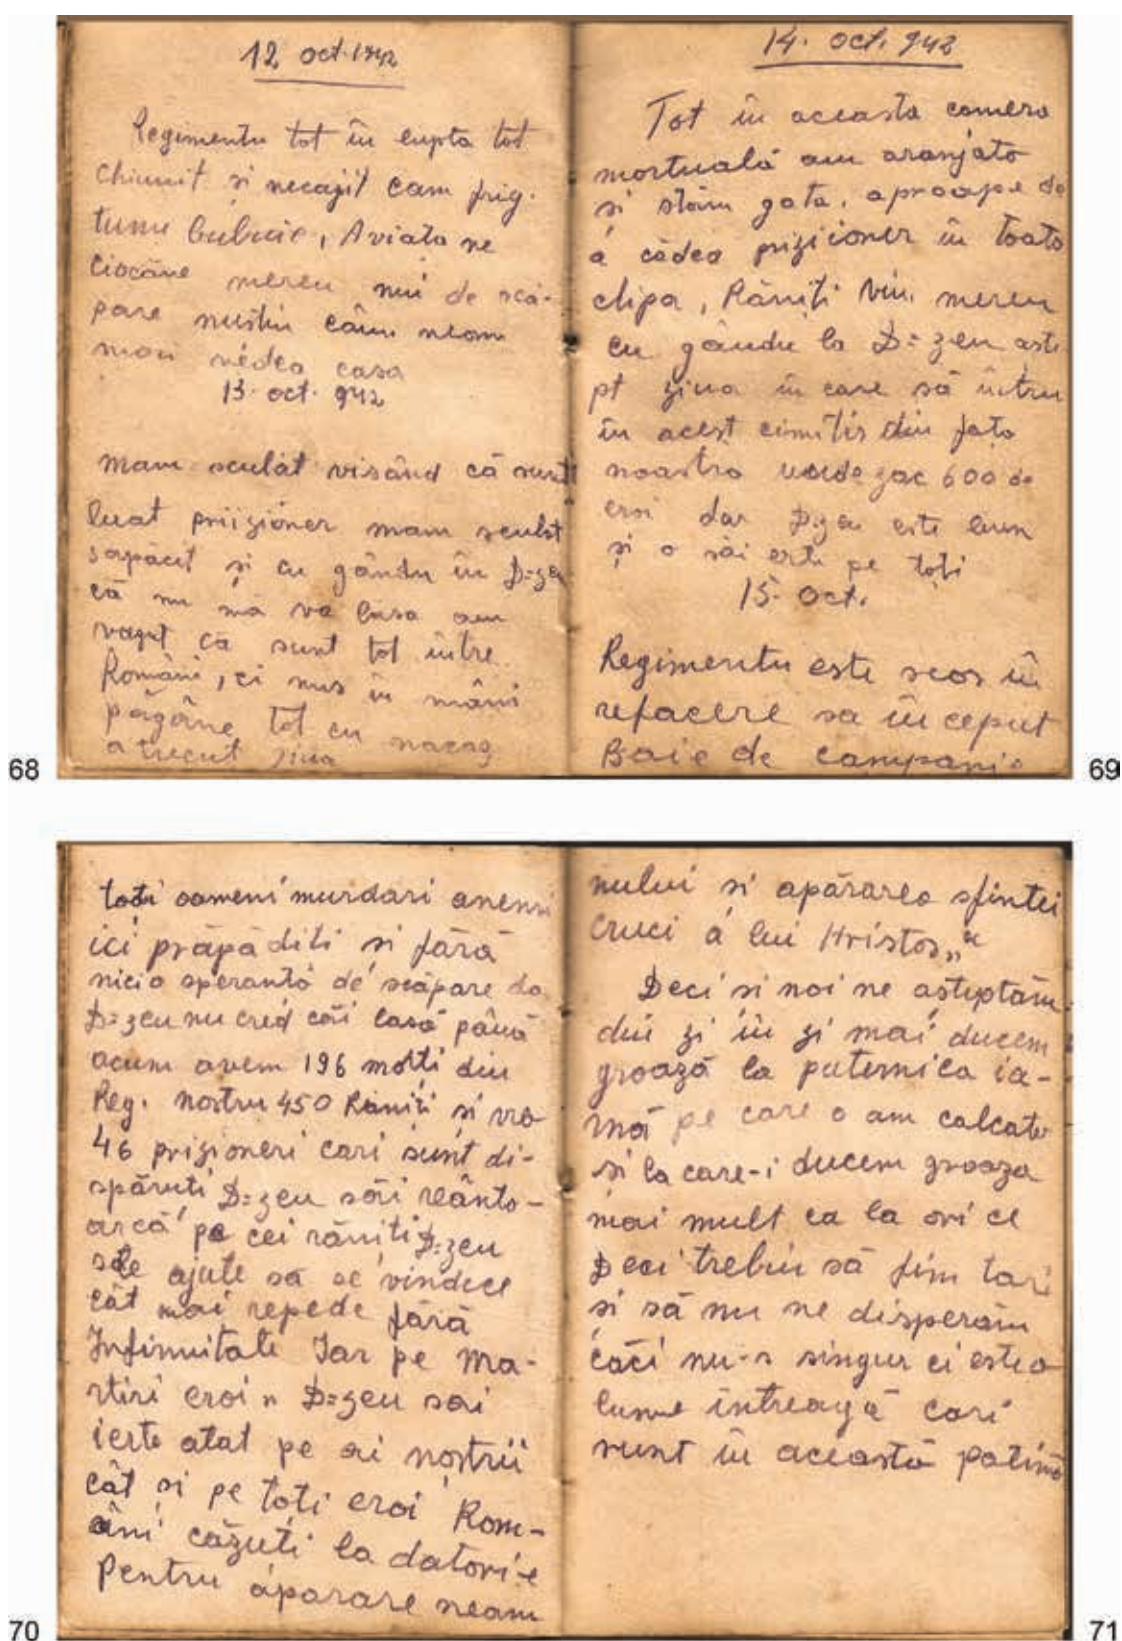 12 oct. 1942
Regimentu tot în lupta tot
chiunit si necajit cam frig.
tunu bubuie, Aviata ne
ciocăne mereu nui de scă-
pare nustiu cum neom
mai vedea casa
13. oct. 942
mam sculat visând că sunt
luat priizioner mam sculat
sapăcit și cu gându în D=zeu
că nu mă va lasa am
vazut că sunt tot între
Români, ci nus în mâni
păgâne tot cu nacaz
a trecut ziua
68
14. oct. 942
Tot în aceasta camera
mortuală am aranjato
si stăm gata, aproape de
a cădea prizioner în toata
clipa, Răniți vin mereu
cu gându la D=zeu aste
pt ziua in care să intru
în acest cimitir din fata
noastra unde zac 600 de
eroi dar D=zeu este bun
și o săi erte pe toți
15. oct.
Regimentu este scos în
refacere sa început
Baie de campanie
69
toti oameni murdari
prăpăditi si fără
nicio speranță de scăpare da
D=zeu nu cred căi lasă până
acum avem 196 molti din
Reg. nostru 450 Raniti si vro
46 prizioneri cari sunt di-
spăruti D=zeu săi reânto-
arcă pe cei răniti D=zeu
să le ajute sa se vindece
cât mai repede fără
Infirmitate Iar pe ma-
rtiri eroi D=zeu sai
ierte atat pe ai noștrii
cât si pe toți eroi Rom-
âni căzuti la datori-e
Pentru áparare neam
70
nului si apărarea sfintei
cruci á lui Hristos„"
Deci si noi ne așteptăm
din zi în zi mai ducem
groază la puternica ia-
rnă pe care o am calcato
si la care-i ducem groaza
mai mult ca la ori ce
Deci trebiu să fim tari
si să nu ne disperăm
căci nu-s singur ci este o
lume întreagă cari
sunt în această patimă
71